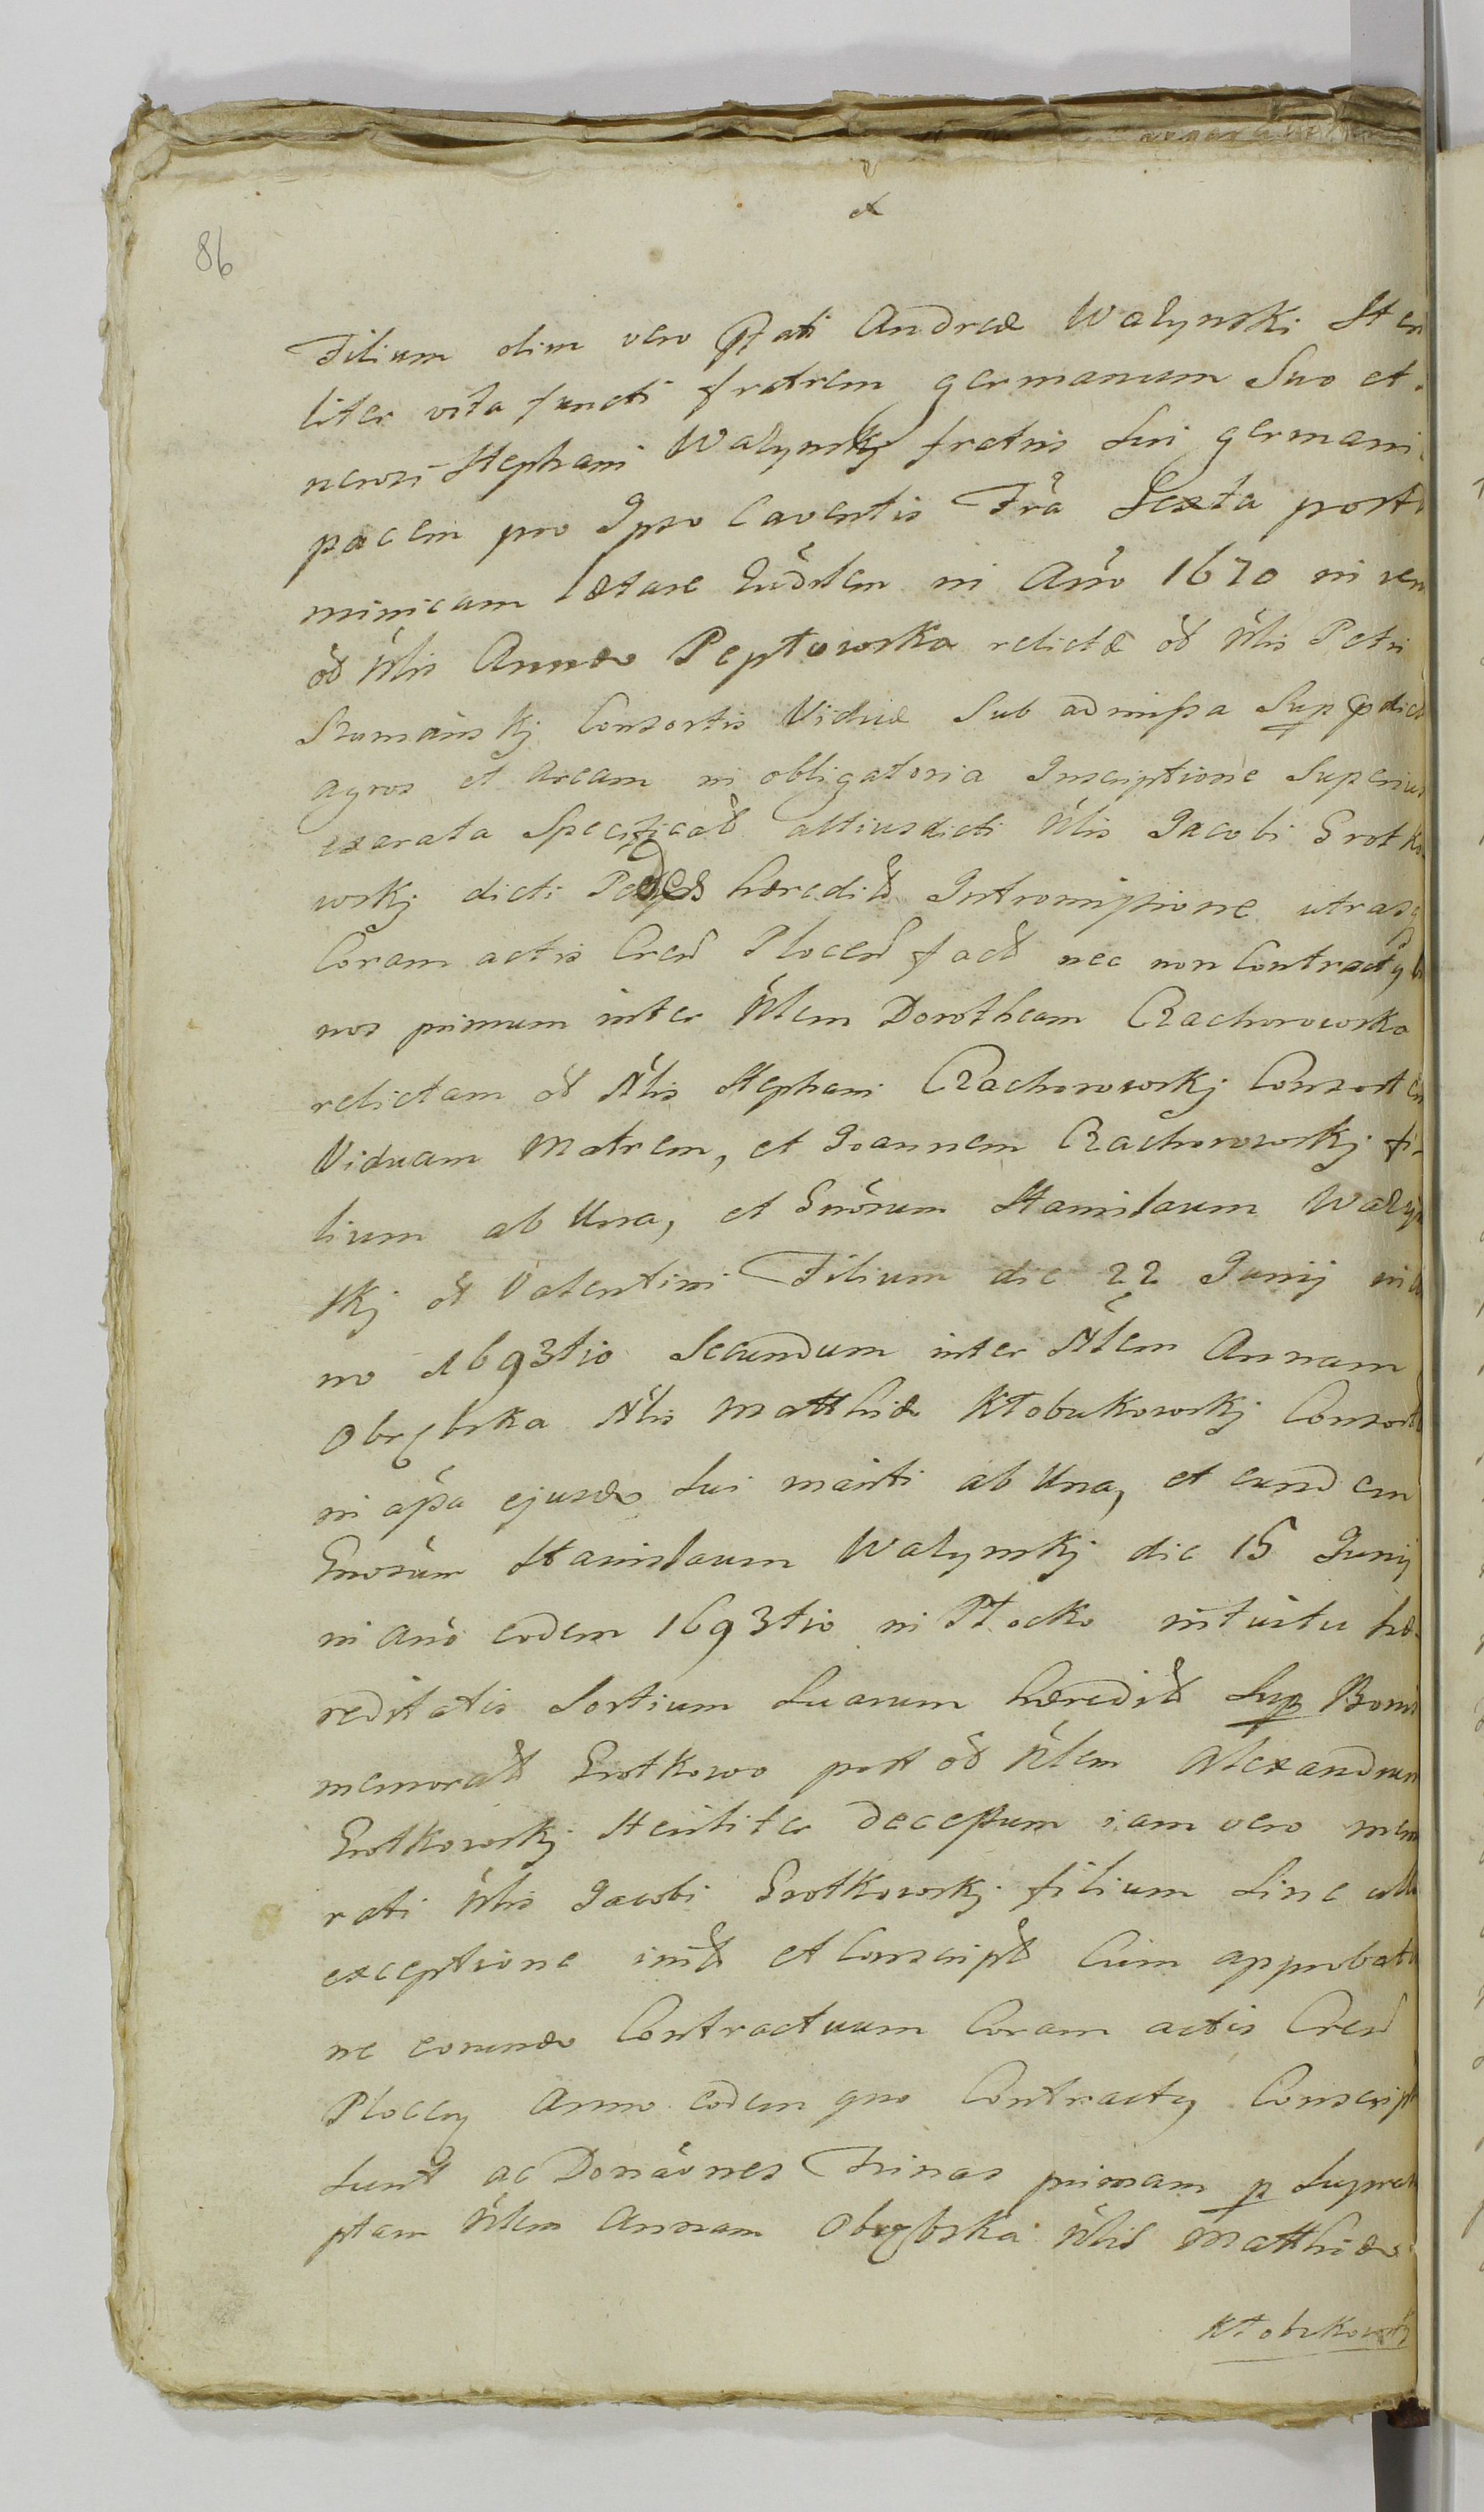 86
Filium olim vero Andreæ Walynski Ster
liter vita functi fratrem germanum Suo et
nerosi Stephani Walynskj fratris Sui germani
pacem pro Ipso Caventis Fra Sexta post
minicam lætare in Año 1670 in
ōd Nlis Annæ Peptowska relictæ ōd Nlis Petri
Szumanskj Consortis Viduæ Sub admissa
agros et aream in obligatoria Inscriptione Superius
exarata Specificād altius dicti Nlis Jacobi Grotko
wskj dicti hæredid Intromissione utrasq
Coram actis Cren Plocen fact nec non Contractq
nos primum inter Nlem Dorotheam Czachorowska
relictam ōd Nlis Stephani Czachorowskj Consortem
Viduam Matrem, et Joannem Czachorowskj fi-
lium ab Una, et Gnōrum Stanislaum Walyn
skj ōd Valentini Filium die 22 Junij in
no 1693tio Secundum inter Nlem Annam
Obrębska Nlis Matthiæ Kłobukowskj Consort
in aſſa ejusde Sui mariti ab Una, et eundem
Gnosum Stanislaum Walynskj die 15 Junij
in año eodem 1693tio in Płocko intuitu hæ-
reditatis Sortium Suarum hæredid Sup Bonis
memorād Grotkowo post ōd Nlem Alexandrum
Grotkowskj Steriliter decessum iam vero mem
rati Nlis Jacobi Grotkowskj filium Sine ulla
exceptione inid et Conscripd Cum approbatio
ne eorunde Contractuum Coram actis Cren
Plocen Anno eodem quo Contractq Conscript
Sunt ac Donaōnes Trinas primam p Supra
ptam Nlem Annam Obrębska Nlis Matthiæ
Kłobukowskj